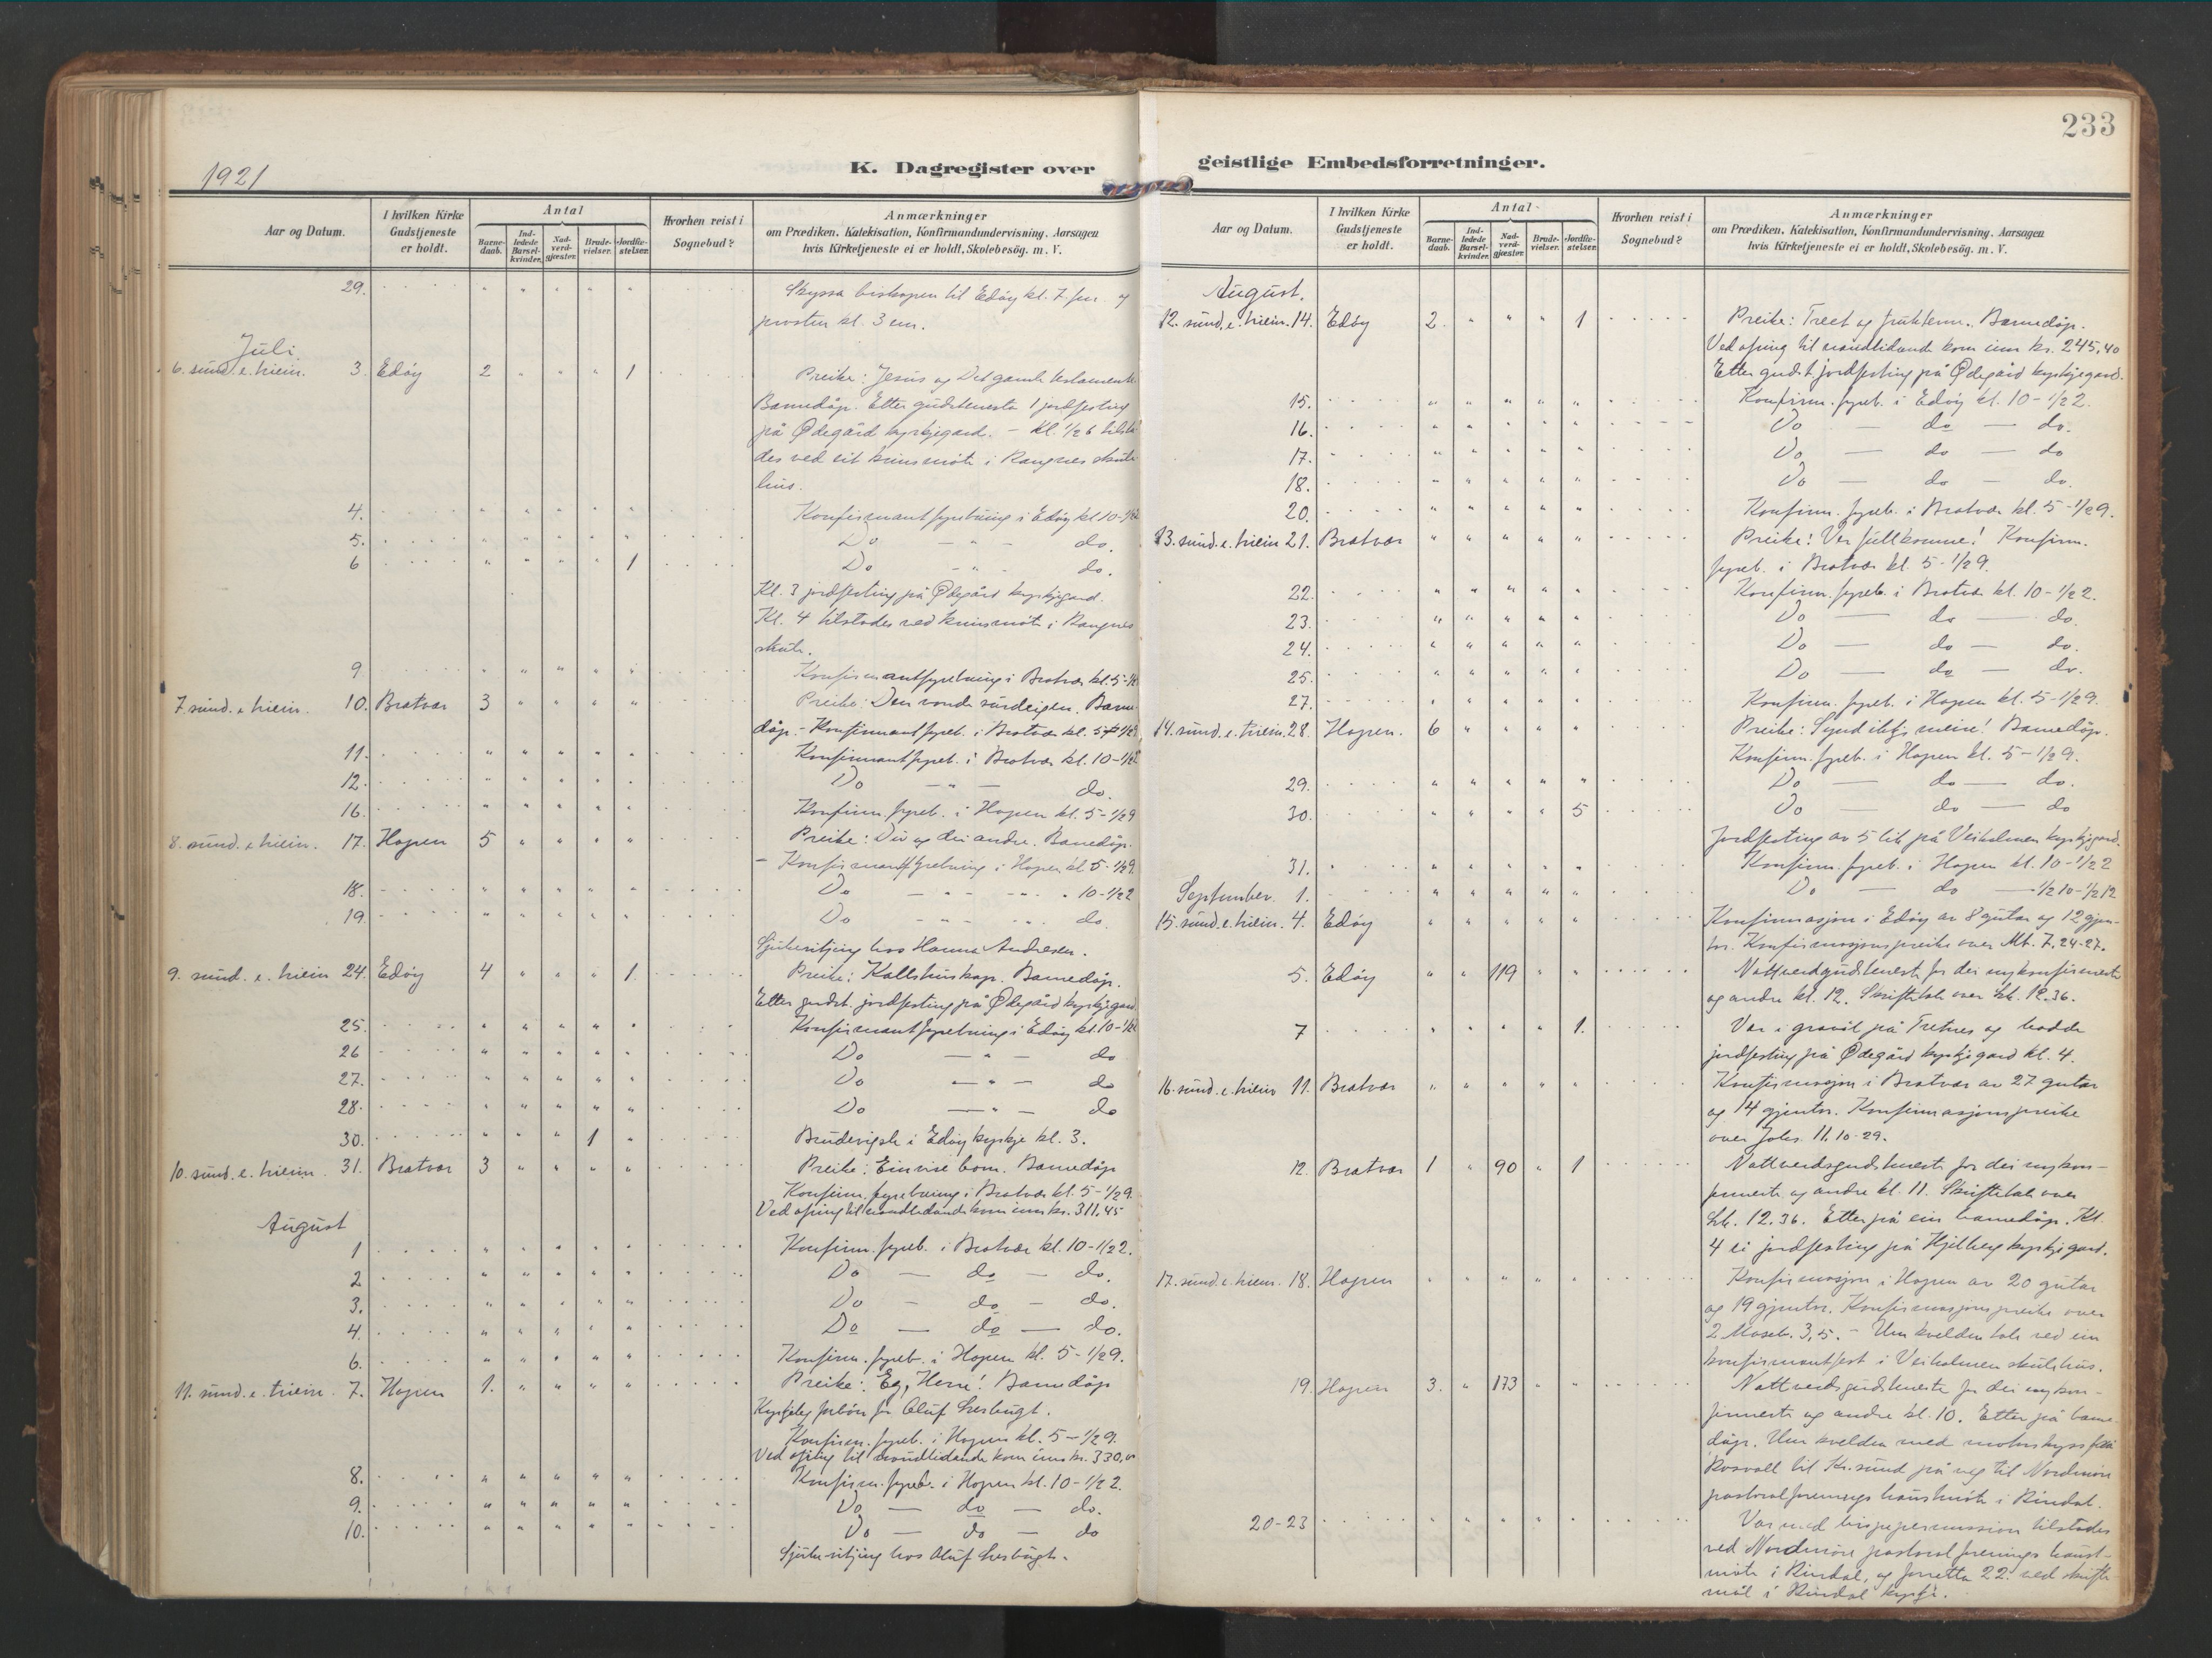 233
1921
K. Dagregister over
geistlige Embedsforretninger.
Aar og Datum.
I hvilken Kirke Gudstjeneste er holdt.
Antal
Barne-daab.
Ind-ledede Barsel-kvinder.
Nad-verd-gjæster.
Brude-vielser.
Jordfæ-stelser.
Hvorhen reist i Sognebud?
Anmærkninger
om Prædiken. Katekisation, Konfirmandundervisning. Aarsagen
hvis Kirketjeneste ei er holdt, Skolebesög. m. V.
29. Skyssa biskopen til Edöy kl. 7 fm. og
prosten kl. 3 em.
Juli
6. sund. e. trein. 3. Edöy 2 1 Preike: Jesus og Det gamle testamente
Barnedåp. Etter gudstenesta 1 jordfesting
på Ødegård kyrkjegard. - Kl. 1/2 6 tilsta-
des ved eit kvinsmöte i Rangnes skule-
hus.
4. Konfirmantfyrebuing i Edöy kl 10-1/2 2
5. Do - " - do.
6 1 Do - " - do.
Kl. 3 jordfesting på Ødegård kyrkjegard.
Kl. 4 tilstades ved kvinsmöte i Rangnes
skule.
9 Konfirmantfyrebuing i Bratvær kl. 5-1/2
7 sund. e. trein. 10. Bratvær 3 Preike: Den vonde surdeigen. Barne-
dåp. - Konfirmantfyreb. i Bratvær kl. 5-1/2 9
11. Konfirmantfyreb. i Bratvær kl. 10-1/2 2
12. Do - " - do.
16. Konfirm. fyreb. i Hopen kl. 5-1/2 9
8. sund. e. trein. 17. Hopen 5 Preike: Du og dei andre. Barnedåp.
- Konfirmantfyrebuing i Hopen kl 5-1/2 9.
18. Do - " - " - 10-1/2 2
19. Do - " - " - do.
Sjukevitjing hos Hanna Andresen.
9. sund. e. trein 24. Edöy 4 1. Preike: Kallshuskap. Barnedåp.
Etter gudst. jordfesting på Ødegård kyrkjegard.
25. Konfirmantfyrebuing i Edöy kl 10-1/2 2
26 Do - " - do
27. Do - " - do
28. Do - " - do
30. 1 Brudevigsle i Edöy kyrkje kl. 3.
10. sund. e. trein. 31. Bratvær 3 Preike: Ein vise bom. Barnedåp
Konfirm. fyrebuing i Bratvær kl. 5-1/2 9.
Ved ofring til naudlidande kom inn kr. 311,45
August
1 Konfirm. fyreb. i Bratvær kl. 10-1/2 2.
2 Do - do - do.
3. Do - do - do.
4. Do - do - do.
6. Konfirm. fyreb. i Hopen kl. 5-1/2 9.
11. sund. e. trein. 7. Hopen 1. Preike: Eg, Herre! Barnedåp
Kyrkjeleg forbön for Oluf
Konfirm. fyreb. i Hopen kl. 5-1/2 9.
Ved ofring til naudlidande kom inn kr. 330,00
8. Konfirm. fyreb. i Hopen kl. 10-1/2 2.
9. Do - do - do.
10. Do - do - do
Sjukevitjing hos Oluf
Aar og Datum.
I hvilken Kirke Gudstjeneste er holdt.
Antal
Barne-daab.
Ind-ledede Barsel-kvinder.
Nad-verd-gjæster.
Brude-vielser.
Jordfæ-stelser.
Hvorhen reist i Sognebud?
Anmærkninger
om Prædiken. Katekisation, Konfirmandundervisning. Aarsagen
hvis Kirketjeneste ei er holdt, Skolebesög. m. V.
August.
12. sund. e. trein. 14. Edöy 2. 1 Preike: Treet og frukterne. Barnedåp.
Ved ofring til naudlidande kom inn kr. 245,40
Etter gudst. jordfesting på Ødegård kyrkjegard.
15. Konfirm. fyreb. i Edöy kl. 10-1/2 2.
16. Do - do - do.
17. Do - do - do
18. Do - do - do.
20. Konfirm. fyreb. i Bratvær kl. 5-1/2 9.
13. sund. e. trein 21. Bratvær Preike: Ver fullkomne! Konfirm.
fyreb. i Bratvær kl. 5-1/2 9.
22. Konfirm. fyreb. i Bratvær kl. 10-1/2 2.
23. Do - do - do.
24. Do - do - do.
25. Do - do - do.
27. Konfirm. fyreb. i Hopen kl. 5-1/2 9.
14. sund. e. trein. 28. Hopen. 6 Preike: Barnedåp.
Konfirm. fyreb. i Hopen kl. 5-1/2 9.
29. Do - do - do.
30. 5 Do - do - do
Jordfesting av 5 lik på Veiholmen kyrkjegard.
31. Konfirm. fyreb. i Hopen kl. 10-1/2 2
September. 1. Do - do - 1/2 10-1/2 12
15. sund. e. trein. 4. Edöy Konfirmasjon i Edöy av 8 gutar og 12 gjen-
tor. Konfirmasjonspreike over Mt. 7, 24-27.
5. Edöy 119 Nattverdgudsteneste for dei nykonfirmerte
og andre kl. 12. Skriftetale over Lk. 12.36.
7 1. Var i gravöl på Tretnes og hadde
jordfesting på Ødegård kyrkjegard kl. 4.
16. sund. e. trein 11. Bratvær Konfirmasjon i Bratvær av 27 gutar
og 14 gjentor. Konfirmasjonspreike
over Johs. 11. 10-29.
12. Bratvær 1 90 1 Nattverdsgudsteneste for dei nykon-
firmerte og andre kl. 11. Skriftetale over
Lk. 12.36. Etter på ein barnedåp. Kl.
4 ei jordfesting på Hjelberg kyrkjegard.
17. sund. e. trein. 18. Hopen Konfirmasjon i Hopen av 20 gutar
og 19 gjentor. Konfirmasjonspreike over
2 Moseb. 3,5. - Um kvelden tale ved ein
konfirmantfest i Veiholmen skulehus.
19. Hopen 3. 173 Nattverdsgudsteneste for dei nykon-
firmerte og andre kl. 10. Etter på barne-
dåp. Um kvelden med motorskyss frå
Rosvoll til Kr.sund på veg til Nordmöre
pastoralforenings haustmöte i Rindal.
20-23 Var med bispepermission tilstades
ved Nordmöre pastoralforenings haust-
möte i Rindal, og forretta 22. ved skrifte-
mål i Rindal kyrkje.